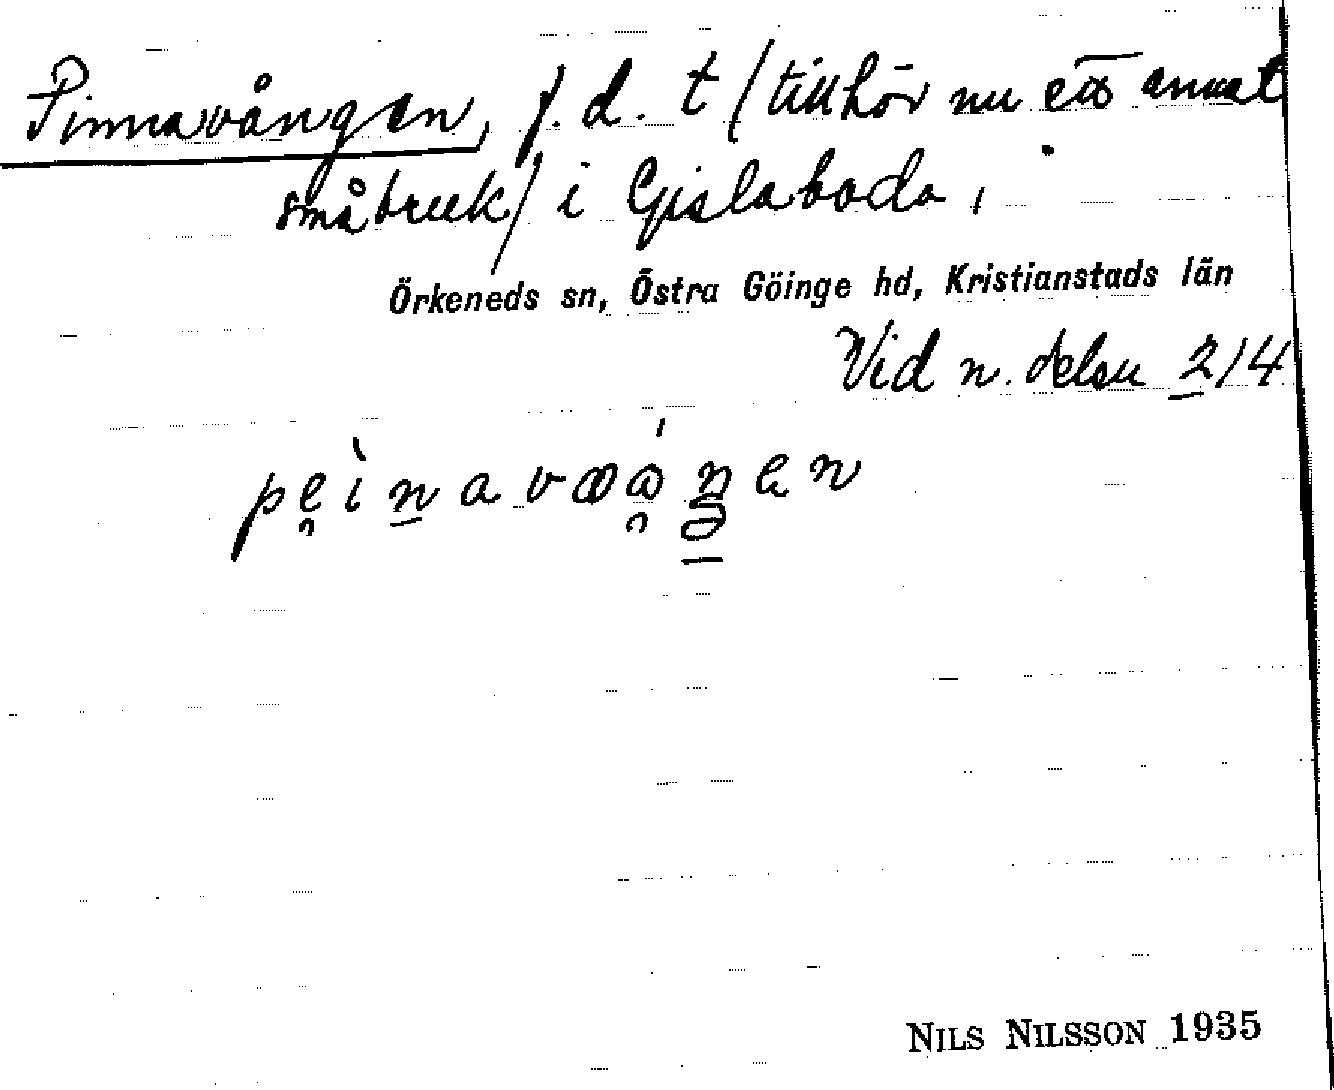 Pinnavången, f.d. t /tillhör nu ett annat
småbruk/ i Gislaboda,
Örkeneds sn, Östra Göinge hd, Kristianstads län
Vid n. delen 2/4
NILS NILSSON 1935